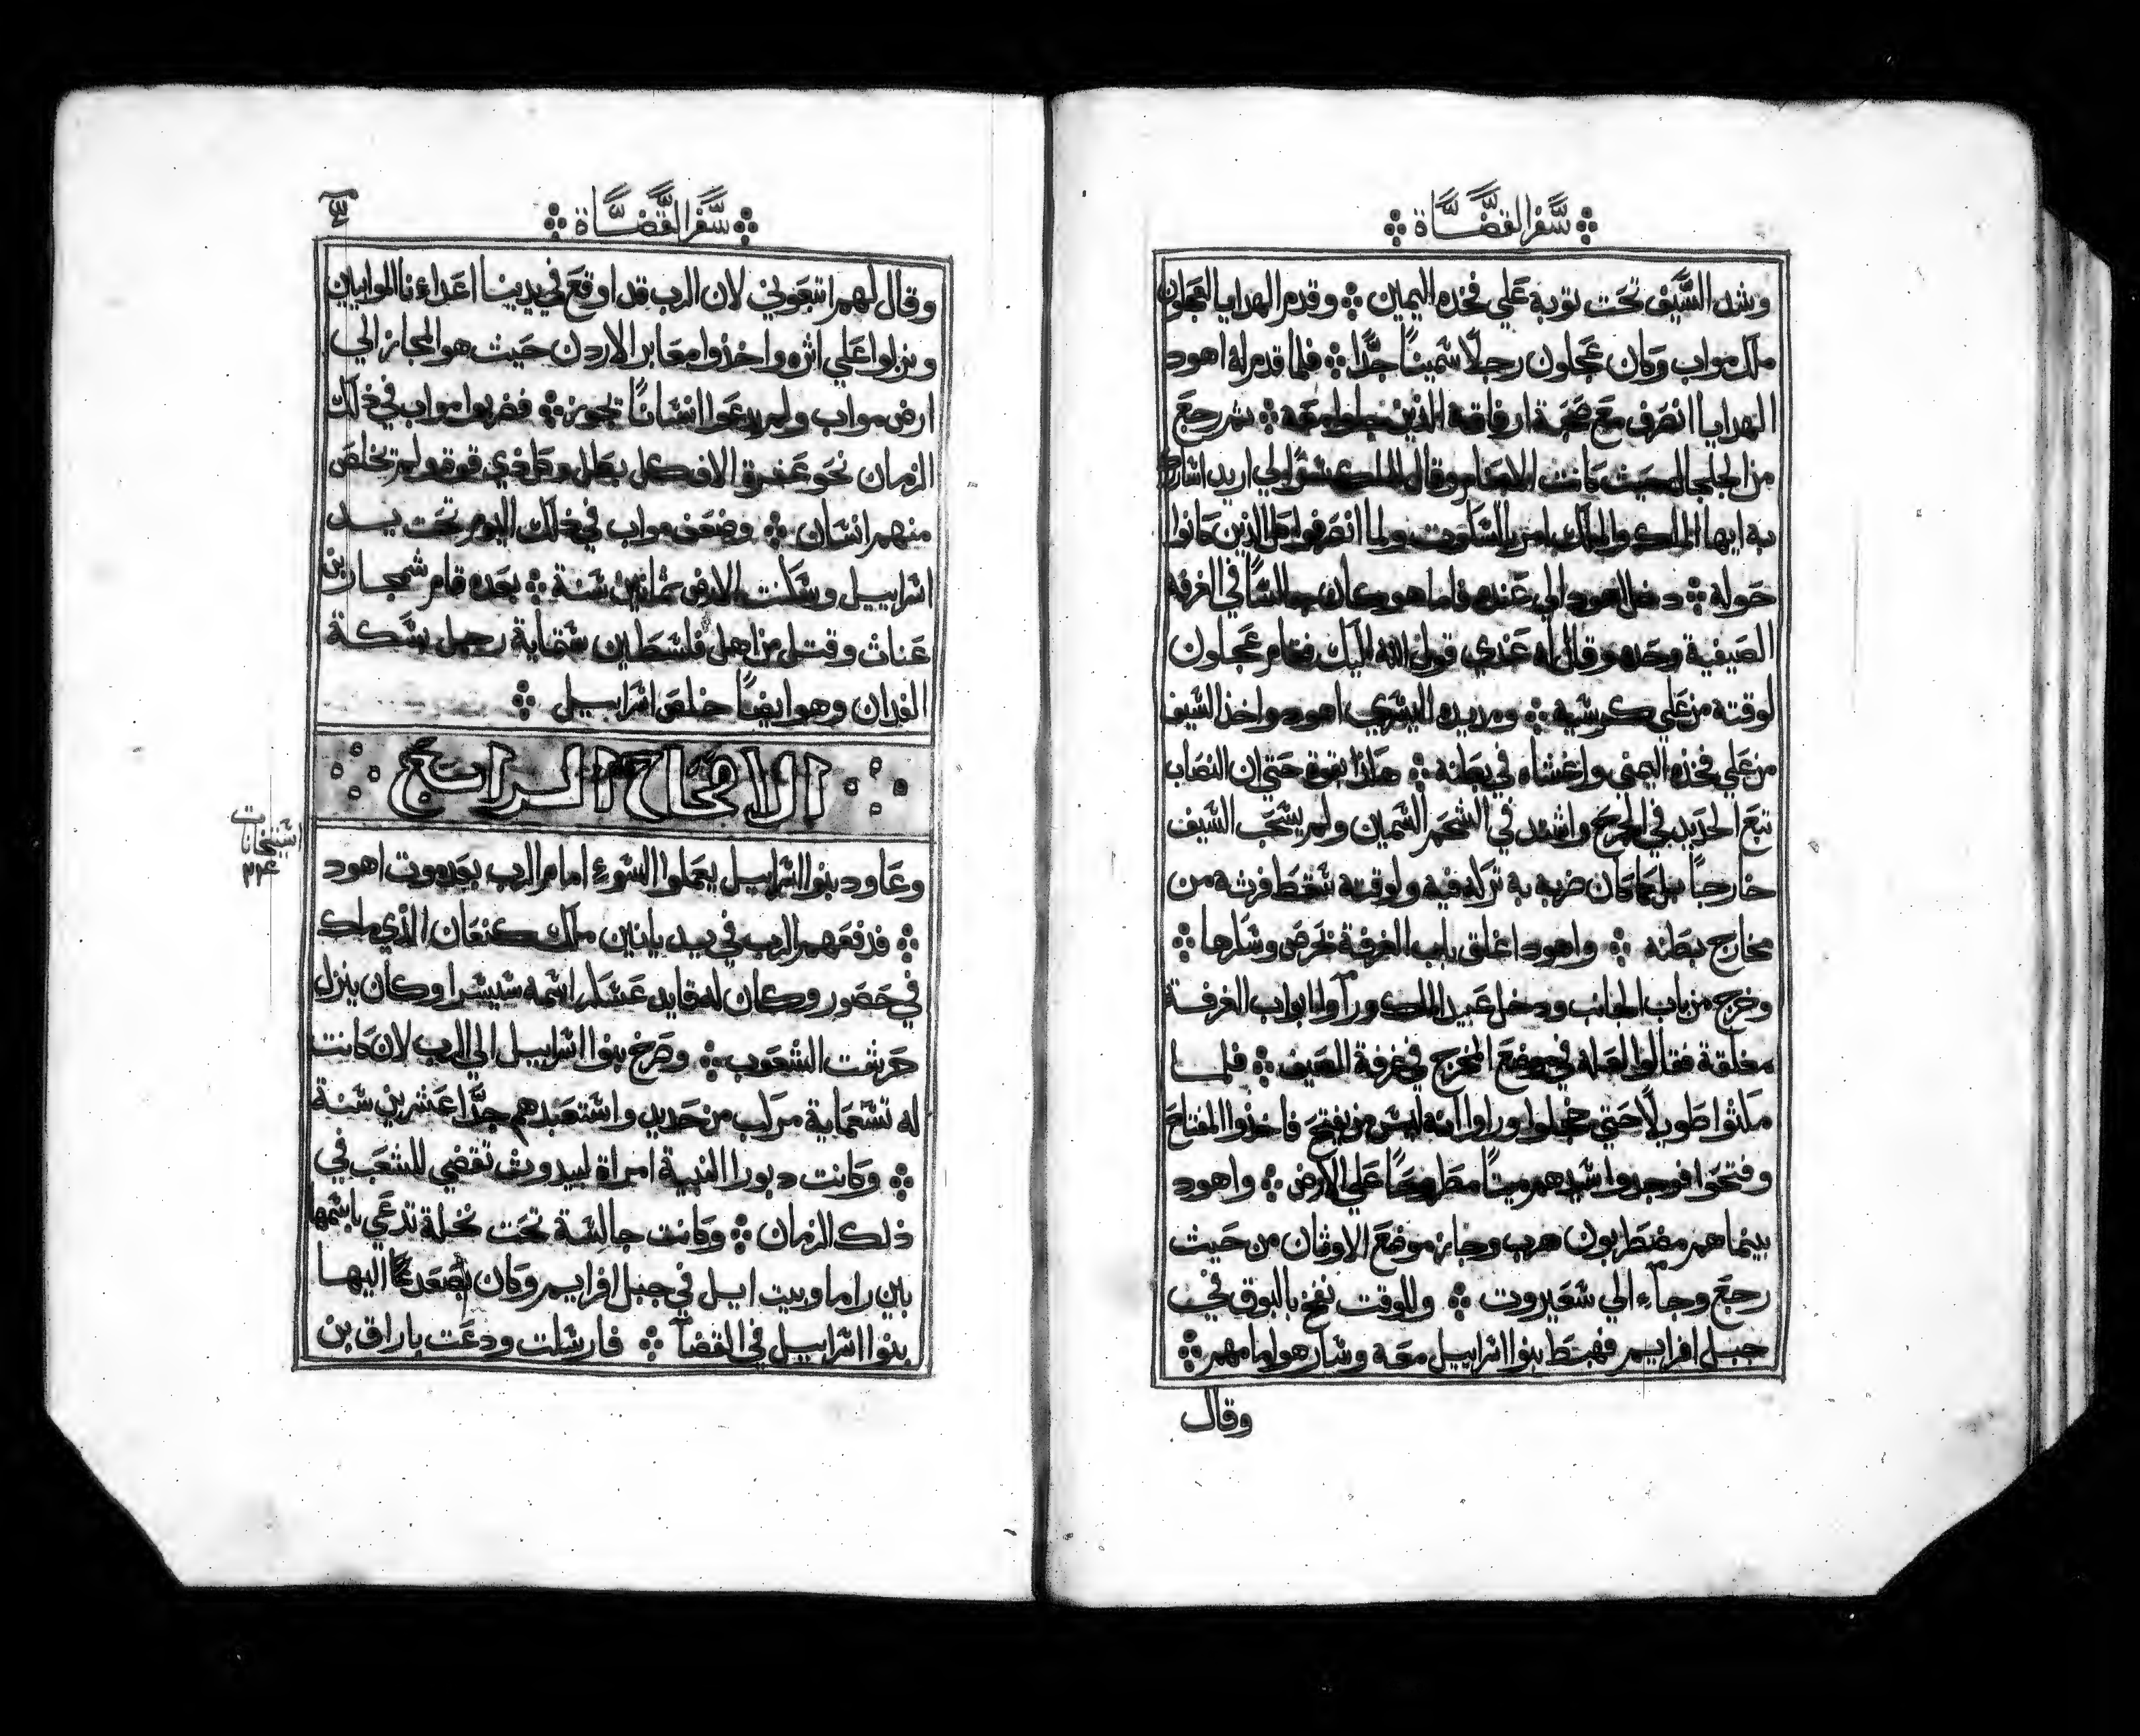 سفر القضاة
وشد السيف تحت ثوبه علي فخذه اليمين ❖ وقدم الهدايا لعجلون
ملك مواب وكان عجلون رجلاً سميناً جدًّا ❖ فلما قدم له اهود
الهدايا انصرف مع صحبة ارفاقه الذين معه ❖ ثم رجع
من الجلجال حيث كانت الاصنام وقال للملك اريد
به ايها الملك والملك امر بالسكوت ولما انصرفوا الذين كانوا
حوله ❖ دخل اهود الي عنده فاما هو كان جالساً في الغرفه
الصيفية وحده وقال له عندي قول الله اليك فقام عجلون
لوقته من علي كرسيه ❖ ومد يده اليسري اهود واخذ السيف
من علي فخذه اليمني واغشاه في بطنه ❖ هكذا بقوة حتي ان النصاب
تبع الحديد في الجرح واشتد في الشحم السمين ولم يسحب السيف
خارجاً بل كما كان ضربه به تركه فيه ولوقته سقط فرثه من
مخارج بطنه ❖ واهود اغلق باب الغرفة بحرص وسكرها ❖
وخرج من باب الجانب ودخل عبيد الملك ورآوا ابواب الغرفة
مغلقة فقالوا لعله في موضع المخرج في غرفة الصيف ❖ فلما
مكثوا طويلاً حتي خجلوا وراوا انه ليس من يفتح فاخذوا المفتاح
وفتحوا فوجدوا سيدهم ميتاً مطروحاً علي الارض ❖ واهود
بينما هم مضطربون هرب وجاز موضع الاوثان من حيث
رجع وجآء الي سعيروت ❖ وللوقت نفخ بالبوق في
جبل افرايم فهبط بنوا اسراييل معه وسار هو امامهم ❖
وقال
سفر القضاة
وقال لهم اتبعوني لان الرب قد اوقع في يدينا اعداءنا الموابيين
ونزلوا علي اثره واخذوا معابر الاردن حيث هو المجاز الي
ارض مواب ولم يدعوا انساناً يجوز ❖ فضربوا مواب في ذلك
الزمان نحو عشرة الاف كل بطل وكل ذي قوة ولم يتخلص
منهم انسان ❖ وضعف مواب في ذلك اليوم تحت يد
اسراييل وسكنت الارض ثمانين سنة ❖ بعده قام شمجار بن
عناث وقتل من اهل فلسطين ستماية رجل بسكة
الفدان وهو ايضاً خلص اسراييل ❖
الاصحاح الرابع
وعاود بنوا اسراييل يعملوا السوء امام الرب بعد موت اهود
❖ فدفعهم الرب في يد يابين ملك كنعان الذي ملك
في حصور وكان له قايد عسكر اسمه سيسرا وكان ينزل
حرشت الشعوب ❖ وصرخ بنوا اسراييل الي الرب لان كانت
له تسعماية مركب من حديد واستعبدهم جدًّا عشرين سنة
❖ وكانت دبورا النبية امراة لبيدوث تقضي للشعب في
ذلك الزمان ❖ وكانت جالسة تحت نخلة تدعي باسمها
بين راما وبيت ايل في جبل افرايم وكان يصعد اليها
بنوا اسراييل في القضآ ❖ فارسلت ودعت باراق بن